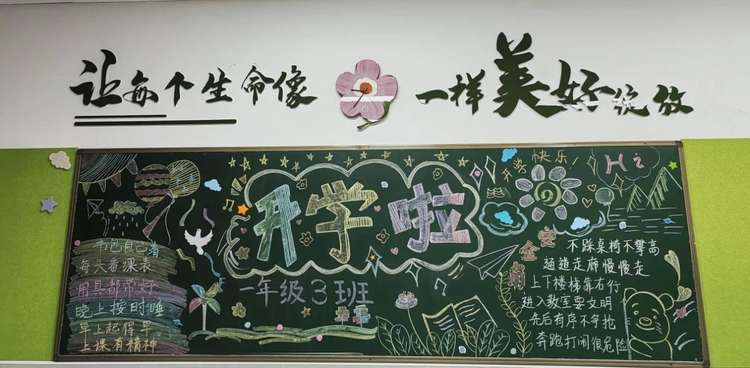 让每个生命像
一样美好绽放
开学啦
一年级3班
书包自己清
每天看课表
用具都带好
晚上按时睡
早上起得早
上课有精神
开学快乐!
Hi
安全角
不跺桌椅不攀高
通道走廊慢慢走
上下楼梯靠右行
进入教室要文明
先后有序不争抢
奔跑打闹很危险